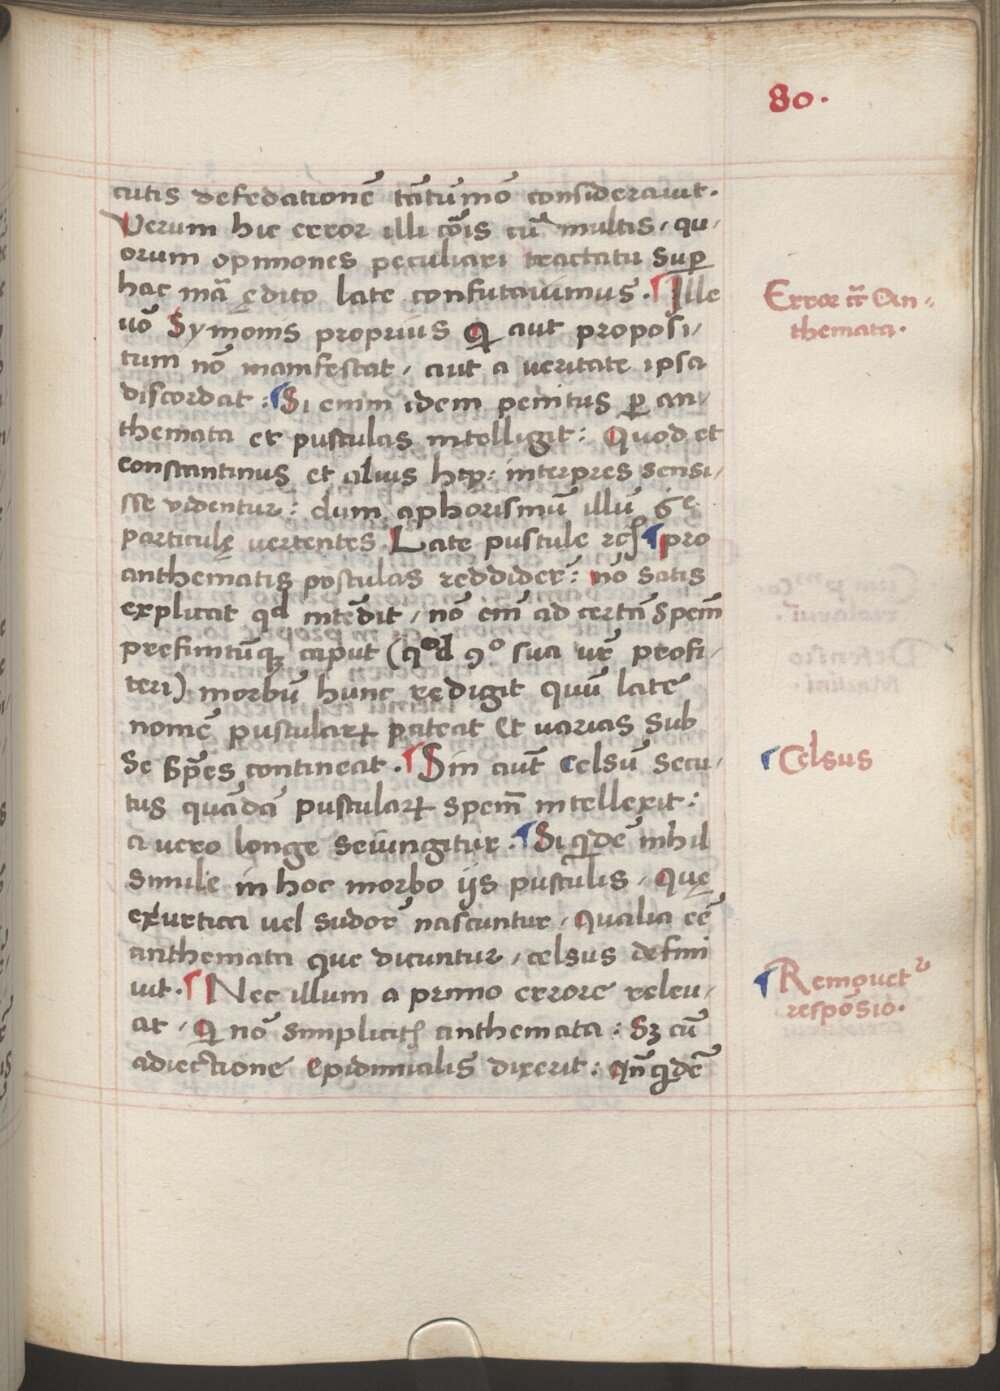 80.
cutis defedationē tātūmō considerauit.
Uerum hic error illi cōis cū multis, qu,
orum opiniones peculiari tractatu Sup̱
hac mā ędito late confutauimus. ¶ Ille
Error cr̄ An,
themata.
uō Symonis proprius Q aut proposi,
tum nō manifestat, aut a ueritate ipsa
discordat: ¶ Si enim idem penitus p̱ an,
themata et pustulas intelligit: Quod et
constantinus et alius htp̱: interpres sensi,
sse videntur: dum aphorismū illū 6e
particulę uertentes Late pustule rcꝭ ¶ pro
anthematis postulas reddider̄: nō satis
explicat qd intēdit, nō em̄ ad certā Spem̄
prefinitūqꝫ caput (qod ꝯo sua ur̄ profi,
teri) morbū hunc redigit quū late
nomē pustularꝝ pateat Et uarias Sub
Se Sp̄es contineat. ¶ Sin aut̄ Celsū Secu,
¶ Celsus
tus quādā pustularꝝ spem̄ intellexit:
a uero longe seiungitur. ¶ Si qdē nihil
Simile in hoc morbo ijs pustulis, Quę
ex urtica uel Sudor̄ nascuntur, Qualia eē
anthemata que dicuntur, celsus defini
uit. ¶ Nec illum a primo errore releu,
¶ Remouetr
respōsio.
at, Q nō simplicitꝭ anthemata: Sꝫ cū
adiectione Epidimialis dixerit: Qn̄qdē